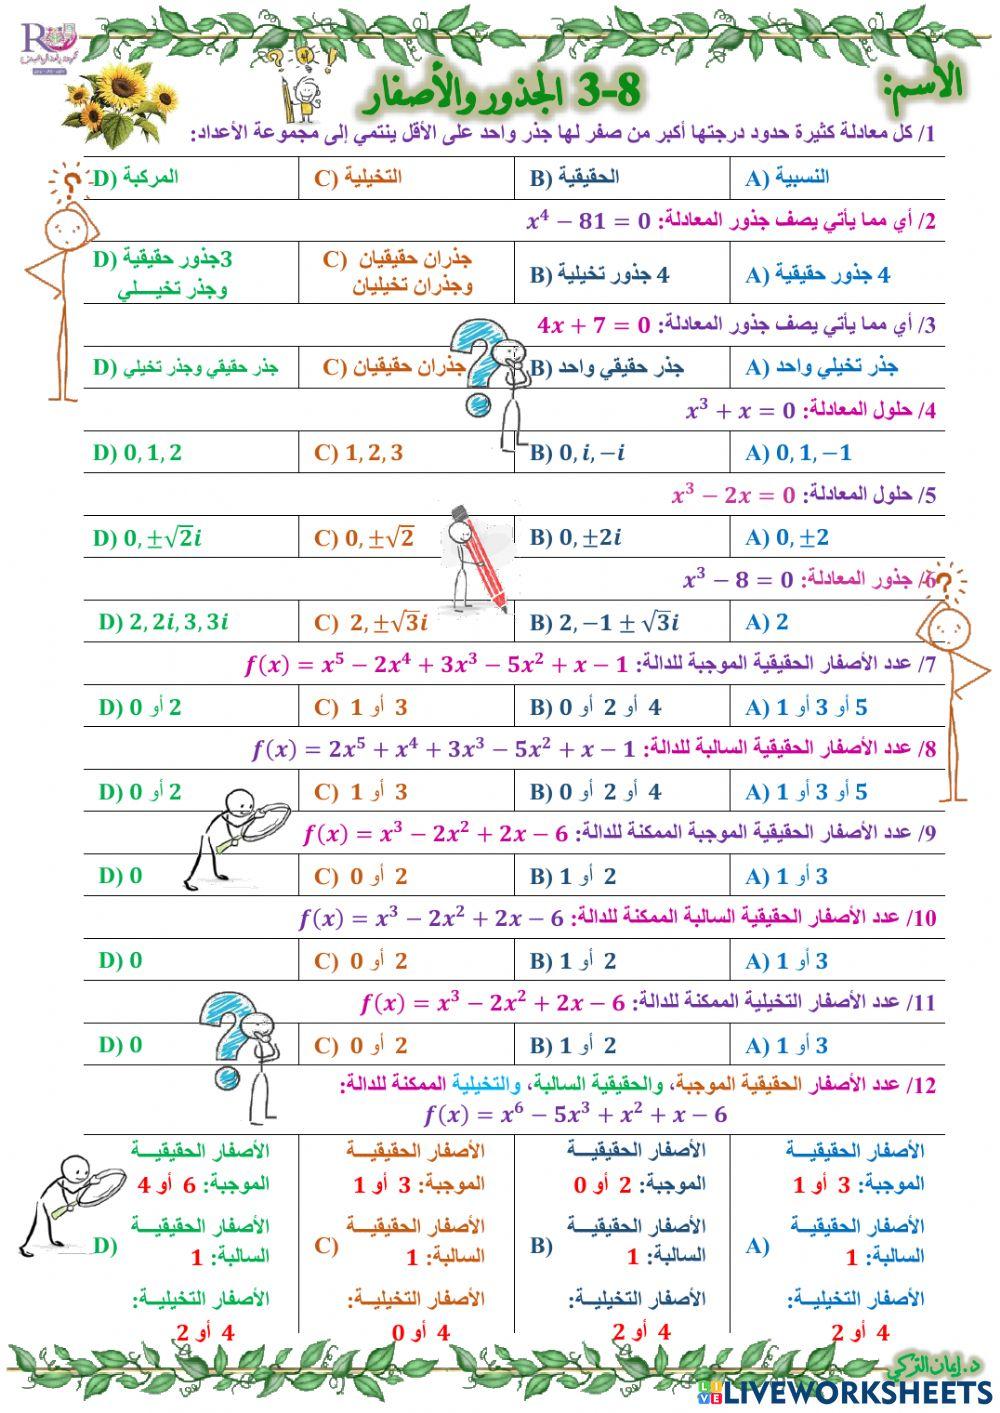 الاسم:
3-8 الجذور والأصفار
1/ كل معادلة كثيرة حدود درجتها أكبر من صفر لها جذر واحد على الأقل ينتمي إلى مجموعة الأعداد:
A) النسبية B) الحقيقية C) التخيلية D) المركبة
2/ أي مما يأتي يصف جذور المعادلة: x⁴ − 81 = 0
A) 4 جذور حقيقية B) 4 جذور تخيلية C) جذران حقيقيان وجذران تخيليان D) 3جذور حقيقية وجذر تخيــــلي
3/ أي مما يأتي يصف جذور المعادلة: 4x + 7 = 0
A) جذر تخيلي واحد B) جذر حقيقي واحد C) جذران حقيقيان D) جذر حقيقي وجذر تخيلي
4/ حلول المعادلة: x³ + x = 0
A) 0, 1, −1 B) 0, i, −i C) 1, 2, 3 D) 0, 1, 2
5/ حلول المعادلة: x³ − 2x = 0
A) 0, ±2 B) 0, ±2i C) 0, ±√2 D) 0, ±√2i
6/ جذور المعادلة: x³ − 8 = 0
A) 2 B) 2, −1 ± √3i C) 2, ±√3i D) 2, 2i, 3, 3i
7/ عدد الأصفار الحقيقية الموجبة للدالة: f(x) = x⁵ − 2x⁴ + 3x³ − 5x² + x − 1
A) 5 أو 3 أو 1 B) 4 أو 2 أو 0 C) 3 أو 1 D) 2 أو 0
8/ عدد الأصفار الحقيقية السالبة للدالة: f(x) = 2x⁵ + x⁴ + 3x³ − 5x² + x − 1
A) 5 أو 3 أو 1 B) 4 أو 2 أو 0 C) 3 أو 1 D) 2 أو 0
9/ عدد الأصفار الحقيقية الموجبة الممكنة للدالة: f(x) = x³ − 2x² + 2x − 6
A) 3 أو 1 B) 2 أو 1 C) 2 أو 0 D) 0
10/ عدد الأصفار الحقيقية السالبة الممكنة للدالة: f(x) = x³ − 2x² + 2x − 6
A) 3 أو 1 B) 2 أو 1 C) 2 أو 0 D) 0
11/ عدد الأصفار التخيلية الممكنة للدالة: f(x) = x³ − 2x² + 2x − 6
A) 3 أو 1 B) 2 أو 1 C) 2 أو 0 D) 0
12/ عدد الأصفار الحقيقية الموجبة، والحقيقية السالبة، والتخيلية الممكنة للدالة:
f(x) = x⁶ − 5x³ + x² + x − 6
A)
الأصفار الحقيقيـــة
الموجبة: 3 أو 1
الأصفار الحقيقيـــة
السالبة: 1
الأصفار التخيليــة:
4 أو 2
B)
الأصفار الحقيقيـــة
الموجبة: 2 أو 0
الأصفار الحقيقيـــة
السالبة: 1
الأصفار التخيليــة:
4 أو 2
C)
الأصفار الحقيقيـــة
الموجبة: 3 أو 1
الأصفار الحقيقيـــة
السالبة: 1
الأصفار التخيليــة:
4 أو 0
D)
الأصفار الحقيقيـــة
الموجبة: 6 أو 4
الأصفار الحقيقيـــة
السالبة: 1
الأصفار التخيليــة:
4 أو 2
د. إيمان التركي
LIVEWORKSHEETS